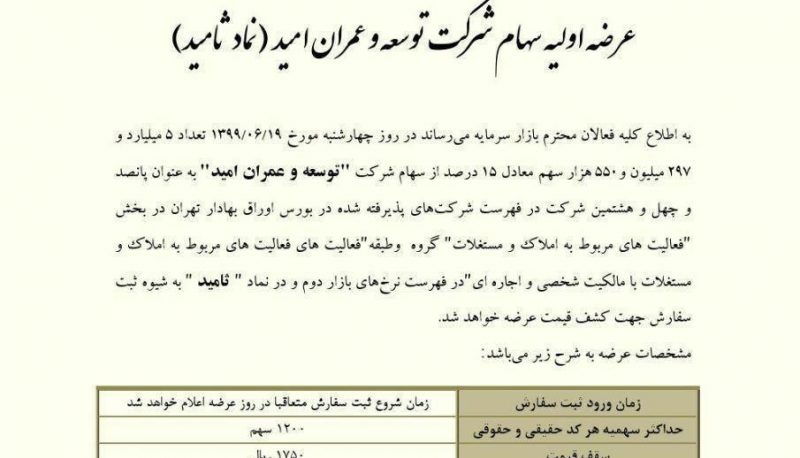 عرضه اولیه سهام شرکت توسعه و عمران امید (نماد ثامید)
به اطلاع کلیه فعالان محترم بازار سرمایه می‌رساند در روز چهارشنبه مورخ ۱۳۹۹/۰۶/۱۹ تعداد ۵ میلیارد و
۲۹۷ میلیون و ۵۵۰ هزار سهم معادل ۱۵ درصد از سهام شرکت "توسعه و عمران امید" به عنوان پانصد
و چهل و هشتمین شرکت در فهرست شرکت‌های پذیرفته شده در بورس اوراق بهادار تهران در بخش
"فعالیت های مربوط به املاک و مستغلات" گروه وطبقه"فعالیت های فعالیت های مربوط به املاک و
مستغلات با مالکیت شخصی و اجاره ای"در فهرست نرخ‌های بازار دوم و در نماد " ثامید " به شیوه ثبت
سفارش جهت کشف قیمت عرضه خواهد شد.
مشخصات عرضه به شرح زیر می‌باشد:
زمان ورود ثبت سفارش زمان شروع ثبت سفارش متعاقبا در روز عرضه اعلام خواهد شد
حداکثر سهمیه هر کد حقیقی و حقوقی ۱۲۰۰ سهم
سقف قیمت ۱۷۵۰ ریال